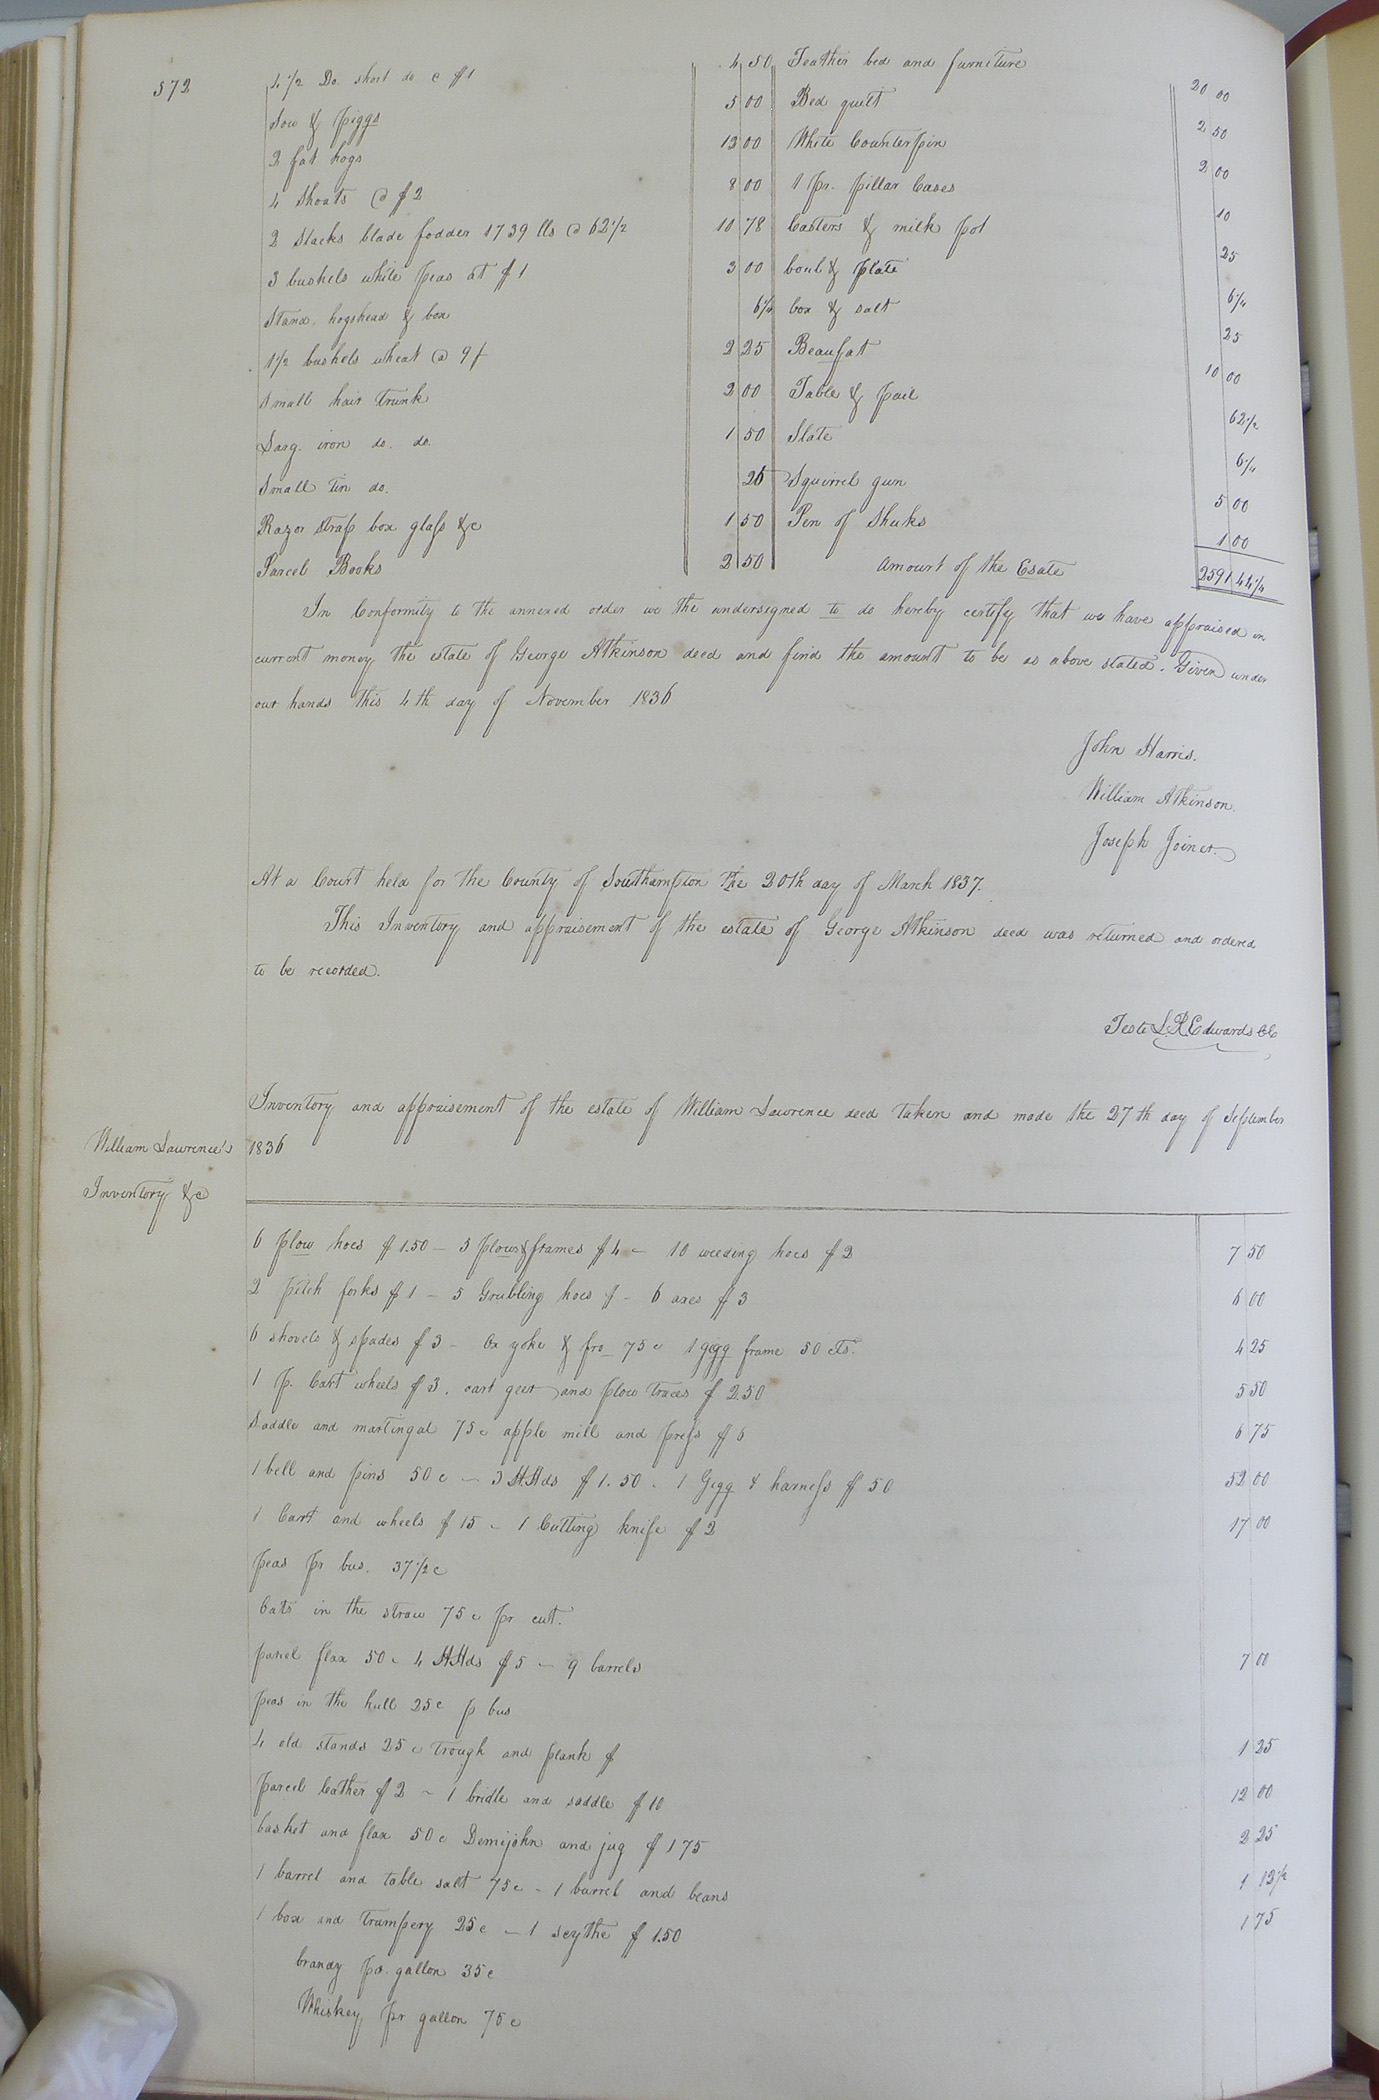 572
4 1/2 Do. short do @ $1 4 50
Sow & piggs 5 00
2 fat hogs 12 00
4 Shoats @ $2 8 00
2 Stacks blade fodder 1739 lbs @ 62 1/2 10 78
3 bushels white peas at $1 3 00
Stand, hogshead & box 6 1/4
1 1/2 bushels wheat @ 9/ 2 25
Small hair trunk 2 00
Larg. iron do. do. 1 50
Small tin do. 25
Razor strap box glass &c 1 50
Parcel Books 2 50
Feather bed and furniture 20 00
Bed quilt 2 50
White Counterpin 2 00
1 pr. pillar Cases 10
Casters & milk pot 25
boul & plate 6 1/4
box & salt 25
Beaufat 10 00
Table & pail 62 1/2
Slate 6 1/4
Squirrel gun 5 00
Pen of Shuks 1 00
Amount of the Esate 2591 44 1/4
In Conformity to the annexed order we the undersigned to do hereby certify that we have appraised in
current money the estate of George Atkinson decd and find the amount to be as above stated. Given under
our hands this 4th day of November 1836
John Harris.
William Atkinson.
Joseph Joiner.
At a Court held for the County of Southampton the 20th day of March 1837.
This Inventory and appraisement of the estate of George Atkinson decd was returned and ordered
to be recorded.
Teste L. R. Edwards CC
Inventory and appraisement of the estate of William Lawrence decd taken and made the 27th day of September
1836
William Lawrence's
Inventory &c
6 plow hoes $1.50 – 5 plows & frames $4 – 10 weeding hoes $2 7 50
2 pitch forks $1 – 5 Grubling hoes $ – 6 axes $3 6 00
6 shovels & spades $3 – Ox yoke & fro 75c 1 gigg frame 50 cts. 4 25
1 p. Cart wheels $3. cart geer and plow traces $2.50 5 50
Saddle and martingal 75c apple mill and press $6 6 75
1 bell and pins 50c – 3 HHds $1.50 – 1 Gigg & harness $50 52 00
1 Cart and wheels $15 – 1 Cutting knife $2 17 00
peas pr bus. 37 1/2 c
Oats in the straw 75c pr cut.
parcel flax 50c 4 HHds $5 – 9 barrels 7 00
peas in the hull 25c p bus
4 old stands 25c trough and plank $ 1 25
parcel leather $2 – 1 bridle and saddle $10 12 00
basket and flax 50c Demijohn and jug $1 75 2 25
1 barrel and table salt 75c – 1 barrel and beans 1 12 1/2
1 box and trumpery 25c – 1 scythe $1.50 1 75
brandy pr. gallon 35c
Whiskey pr gallon 75c